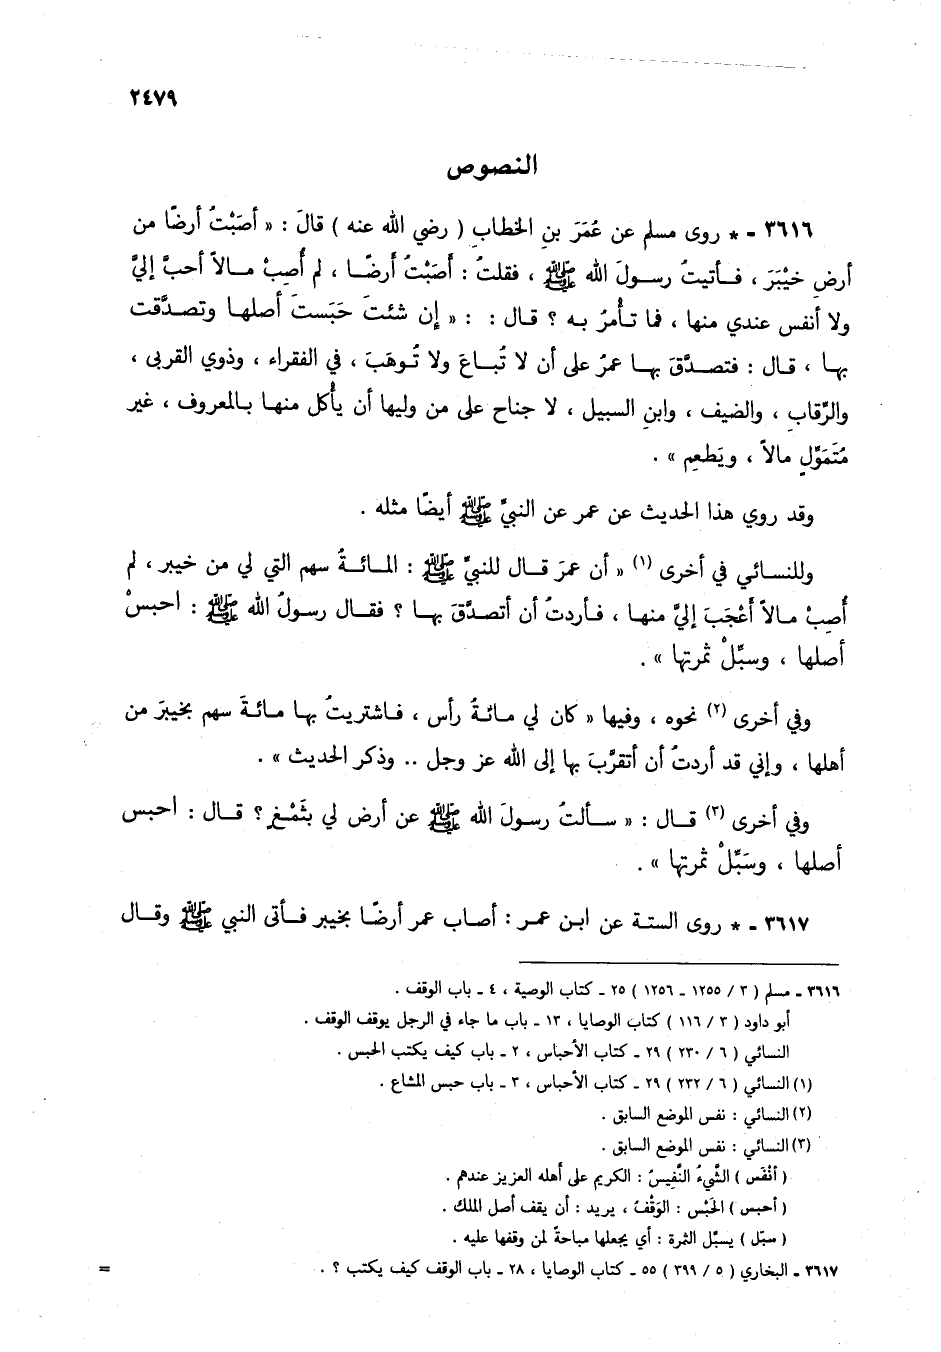 ٢٤٧٩
النصوص
٣٦١٦ - * روى مسلم عن عُمَرَ بنِ الخطابِ ( رضي الله عنه ) قالَ : « أصَبْتُ أرضًا من
أرضِ خيْبَرَ ، فـأتيتُ رسولَ الله ﷺ ، فقلتُ : أصَبْتُ أرضًـا ، لم أُصِبْ مـالاً أحبَّ إليَّ
ولا أنفس عندي منها ، فما تـأمرُ بـه ؟ قـال : : « إن شئتَ حَبَستَ أصلهـا وتصـدَّقت
بِهـا ، قـال : فتصـدَّقَ بِهـا عمرُ على أن لا تُبـاعَ ولا تُوهَبَ ، في الفقراء ، وذوي القربى ،
والرِّقابِ ، والضيف ، وابنِ السبيل ، لا جناح على من وليها أن يأكل منهـا بـالمعروف ، غير
مُتَمَوِّلٍ مالاً ، ويَطعِم » .
وقد روي هذا الحديث عن عمر عن النبيِّ ﷺ أيضًا مثله .
وللنسـائي في أخرى (١) « أن عمرَ قـال للنبيِّ ﷺ : المـائـةُ سهم التي لي من خيبر ، لم
أُصِبْ مـالاً أَعْجَبَ إليَّ منهـا ، فـأردتُ أن أتصدَّقَ بهـا ؟ فقـال رسولُ الله ﷺ : احبسْ
أصلها ، وسبِّلْ ثمرتها » .
وفي أخرى (٢) نحوه ، وفيها « كان لي مـائـةُ رأس ، فـاشتريتُ بهـا مـائـةَ سهم بخيبرَ من
أهلها ، وإني قد أردتُ أن أتقرَّبَ بها إلى الله عز وجل .. وذكر الحديث » .
وفي أخرى (٣) قـال : « سـألتُ رسولَ الله ﷺ عن أرض لي بثَمْغٍ ؟ قـال : احبس
أصلها ، وسَبِّلْ ثمرتها » .
٣٦١٧ - * روى الستـة عن ابـن عمـر : أصـاب عمر أرضًـا بخيبر فـأتى النبي ﷺ وقـال
٣٦١٦ - مسلم ( ٣ / ١٢٥٥ - ١٢٥٦ ) ٢٥ - كتاب الوصية ، ٤ - باب الوقف .
أبو داود ( ٣ / ١١٦ ) كتاب الوصايا ، ١٣ - باب ما جاء في الرجل يوقف الوقف .
النسائي ( ٦ / ٢٣٠ ) ٢٩ - كتاب الأحباس ، ٢ - باب كيف يكتب الحبس .
(١) النسائي ( ٦ / ٢٣٢ ) ٢٩ - كتاب الأحباس ، ٣ - باب حبس المشاع .
(٢) النسائي : نفس الموضع السابق .
(٣) النسائي : نفس الموضع السابق .
( أنْفَس ) الشَّيءُ النَّفِيسُ : الكريم على أهله العزيز عندهم .
( أحبس ) الحَبْس : الوَقْفُ ، يريد : أن يقف أصل الملك .
( سبّل ) يسبِّل الثمرة : أي يجعلها مباحةً لمن وقفها عليه .
٣٦١٧ - البخاري ( ٥ / ٣٩٩ ) ٥٥ - كتاب الوصايا ، ٢٨ - باب الوقف كيف يكتب ؟ . =